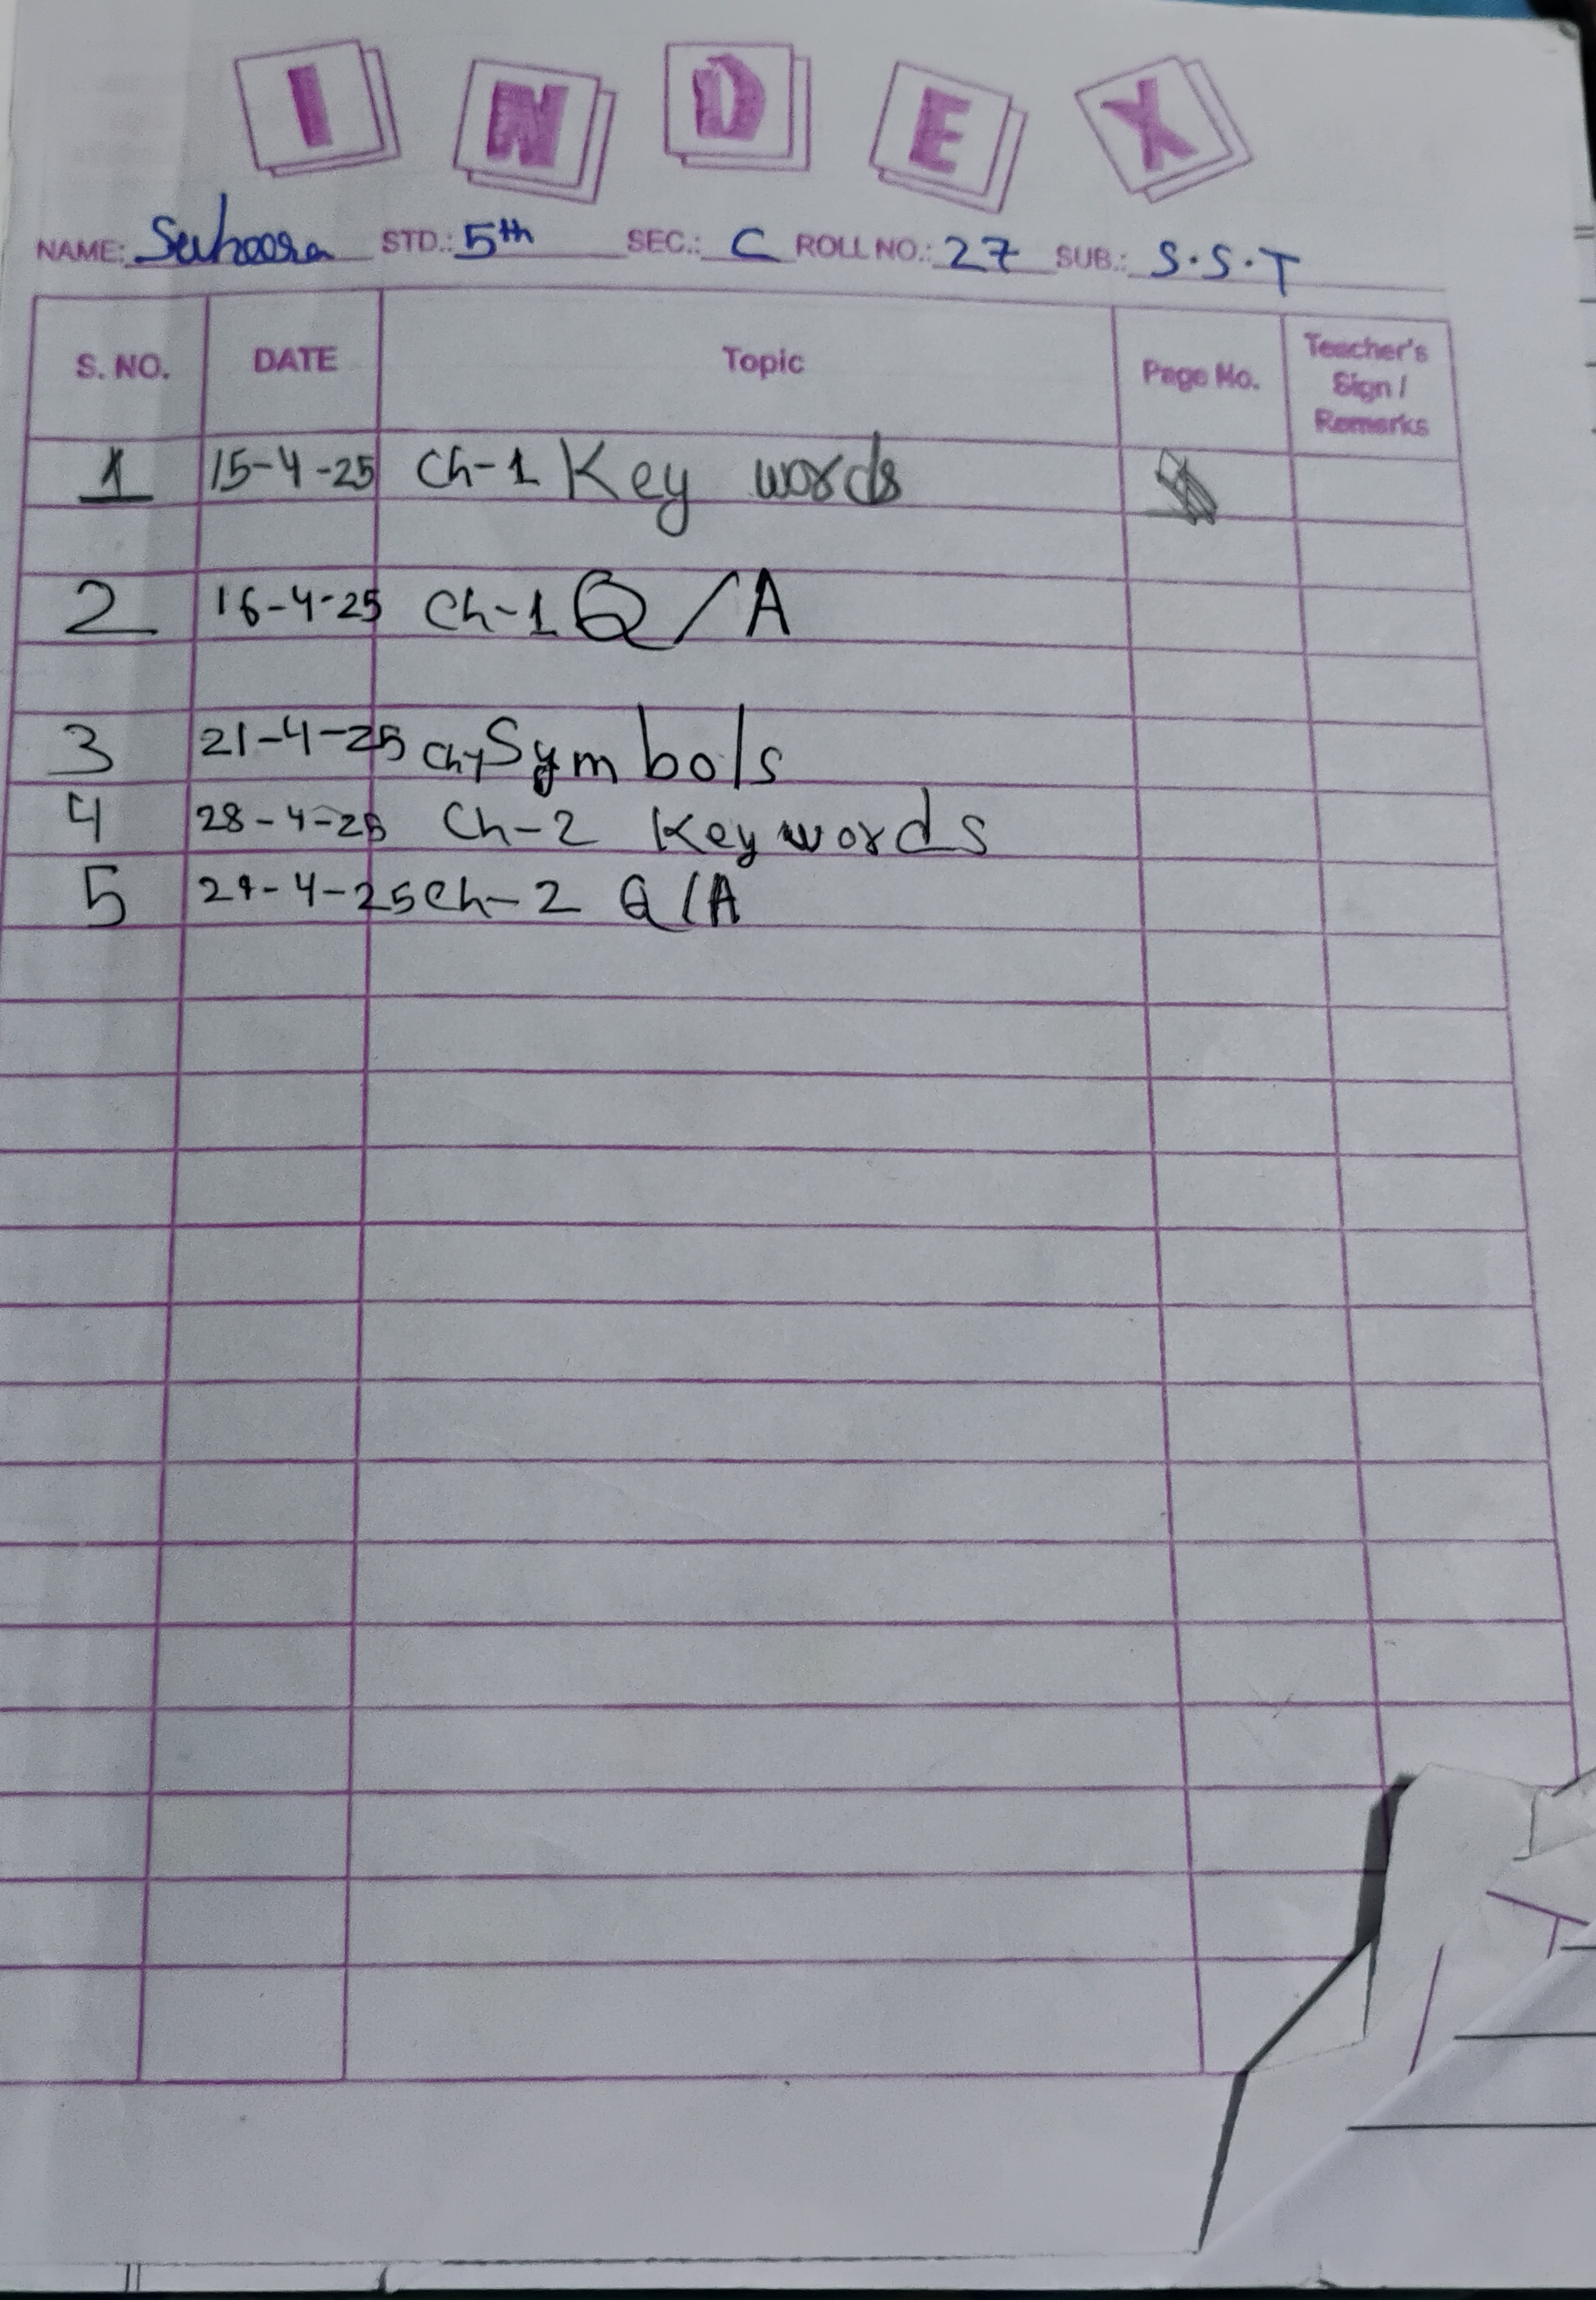 INDEX
NAME: Sehoora STD.: 5th SEC.: C ROLL NO.: 27 SUB.: S.S.T
S. NO. DATE Topic Page No. Teacher's Sign / Remarks
1 15-4-25 Ch-1 Key words
2 16-4-25 Ch-1 Q/A
3 21-4-25 Ch-1 Symbols
4 28-4-25 Ch-2 Key words
5 29-4-25 Ch-2 Q/A